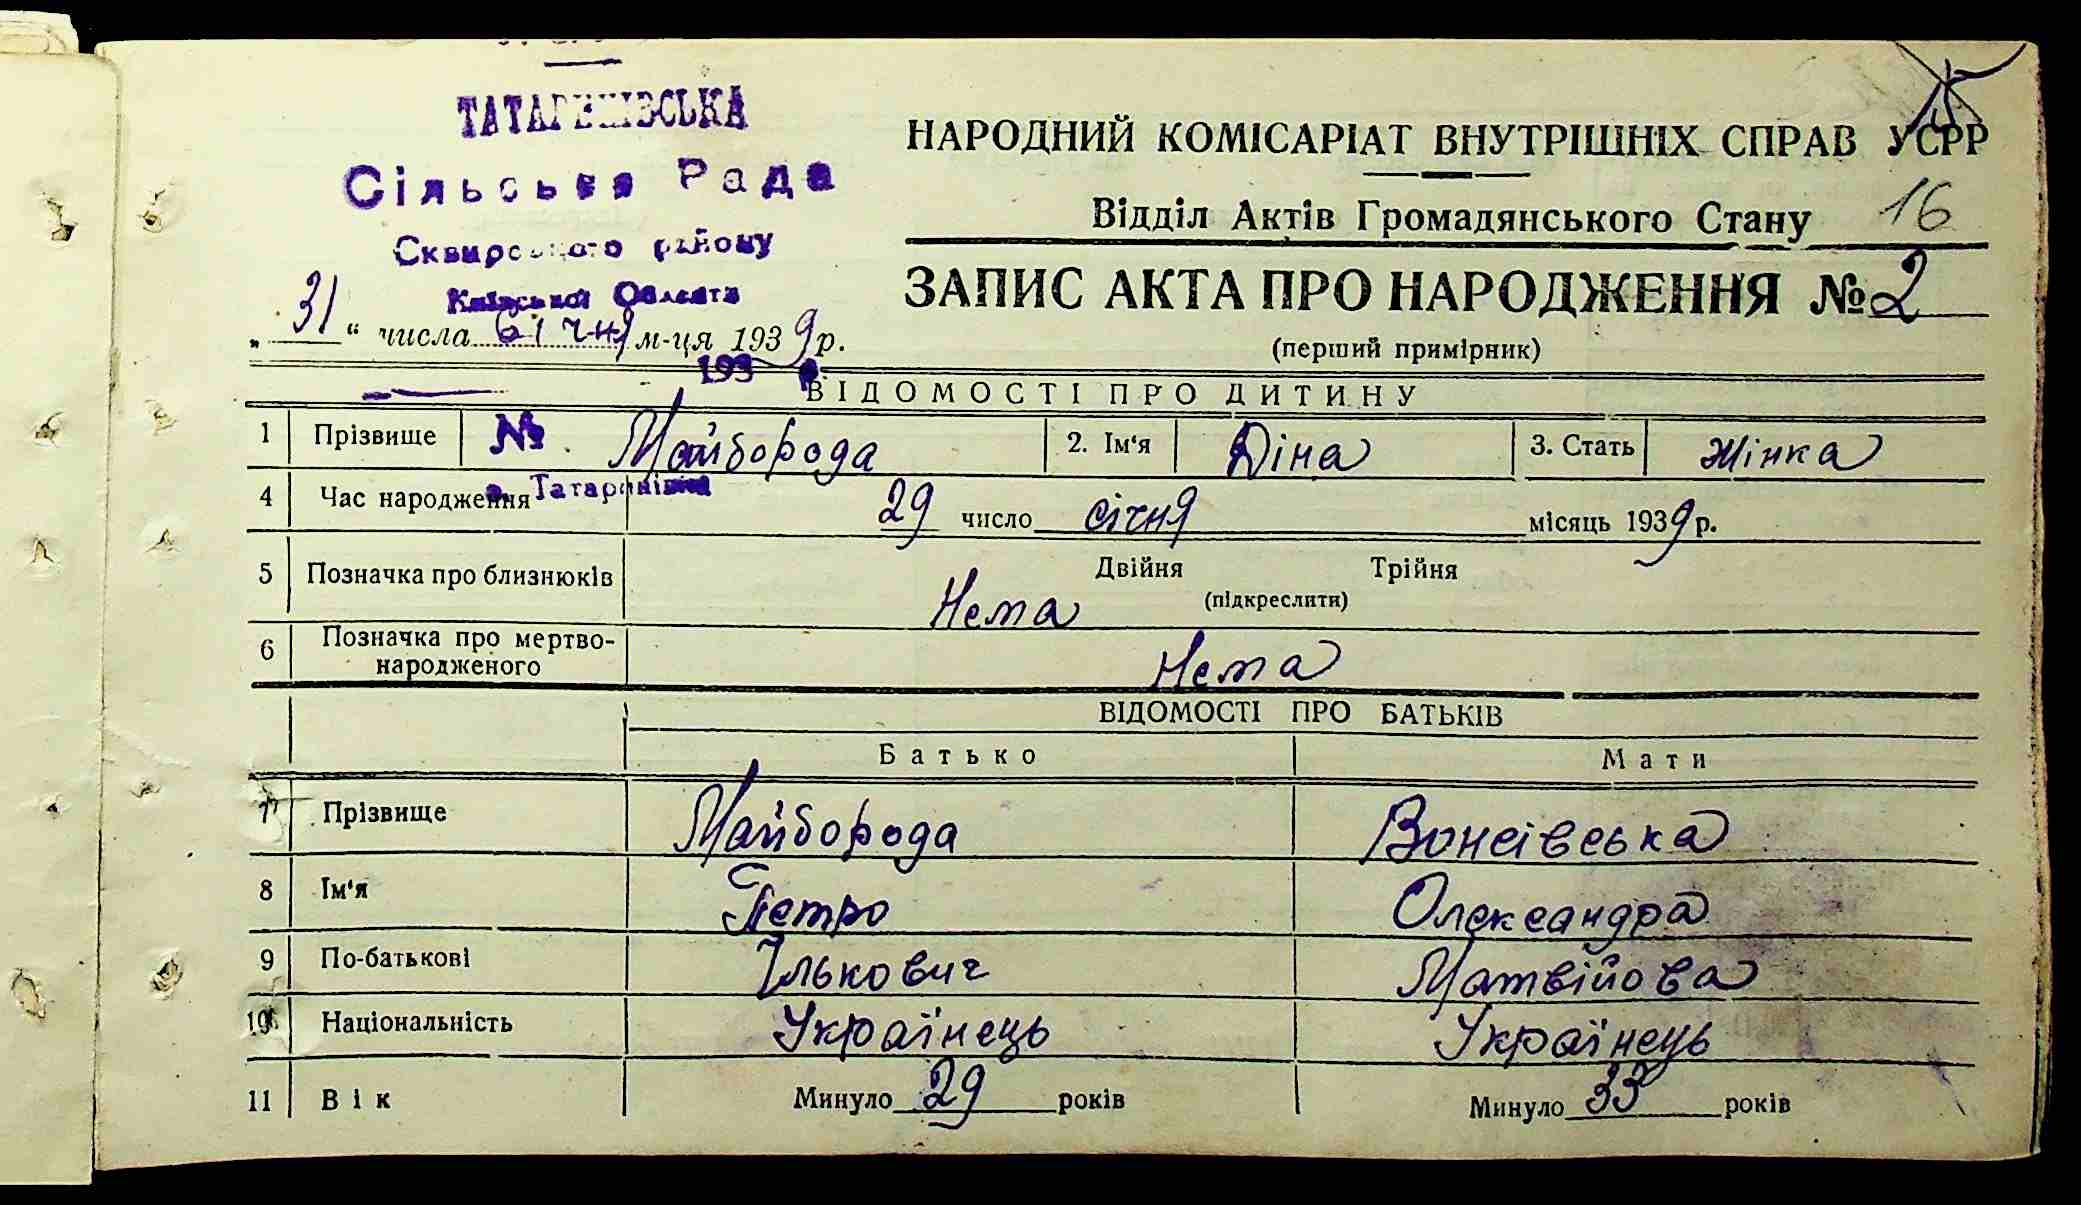 ТАТАРИНІВСЬКА
Сільська Рада
Сквирського району
Київської Области
„31“ числа січня м-ця 1939 р.
193
№
с. Татаринівка
НАРОДНИЙ КОМІСАРІАТ ВНУТРІШНІХ СПРАВ УСРР
Відділ Актів Громадянського Стану 16
ЗАПИС АКТА ПРО НАРОДЖЕННЯ № 2
(перший примірник)
ВІДОМОСТІ ПРО ДИТИНУ
1 Прізвище Майборода 2. Ім‘я Діна 3. Стать жінка
4 Час народження 29 число січня місяць 1939 р.
5 Позначка про близнюків Двійня Трійня
(підкреслити)
Нема
6 Позначка про мертво-
народженого Нема
ВІДОМОСТІ ПРО БАТЬКІВ
Батько Мати
7 Прізвище Майборода Вонсівська
8 Ім‘я Петро Олександра
9 По-батькові Ількович Матвійова
10 Національність Українець Українець
11 Вік Минуло 29 років Минуло 33 років